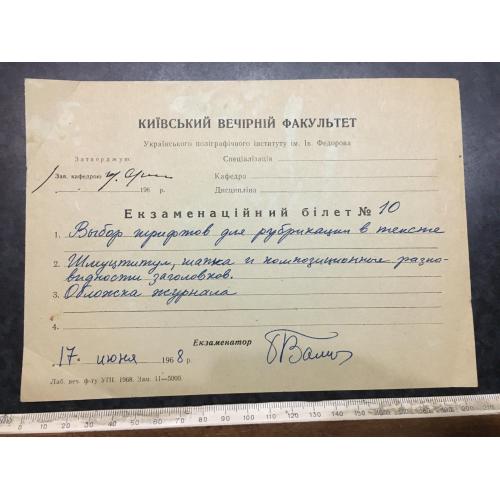 КИЇВСЬКИЙ ВЕЧІРНІЙ ФАКУЛЬТЕТ
Українського поліграфічного інституту ім. Ів. Федорова
Затверджую Спеціалізація
Зав. кафедрою Кафедра
196 р. Дисципліна
Екзаменаційний білет № 10
1. Выбор шрифтов для рубрикации в тексте
2. Шмуцтитул, шапка и композиционные разно-
видности заголовков.
3. Обложка журнала
4.
Екзаменатор
„17. июня 1968 р.
Лаб. веч. ф-ту УПІ. 1968. Зам. 11—5000.